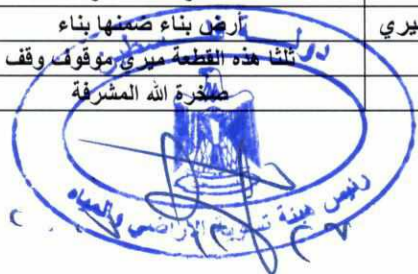 يري
أرض بناء ضمنها بناء
ثلثا هذه القطعة ميري موقوف وقف
صخرة الله المشرفة
دولة فلسطين
رئيس هيئة تسوية الأراضي والمياه